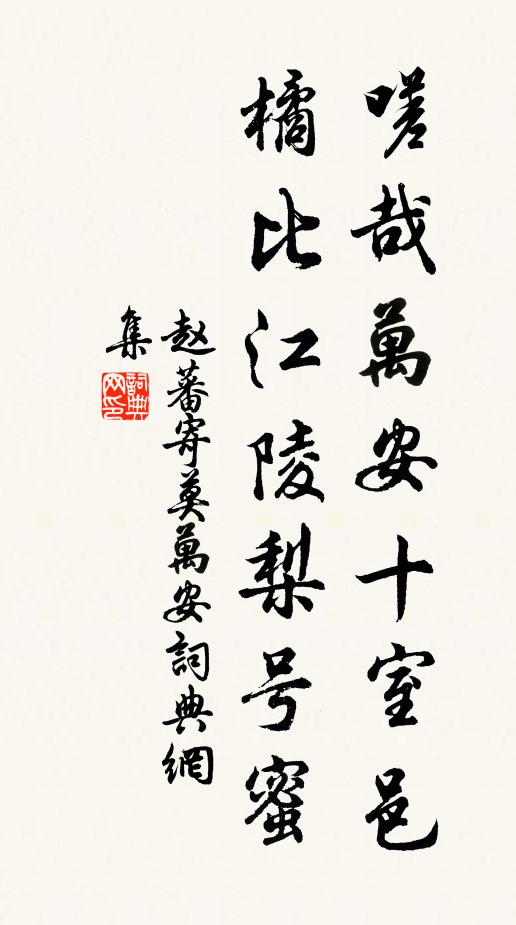 嗟哉萬安十室邑
橘比江陵梨号蜜
赵蕃寄莫萬安詞典網
集
詞典
网印